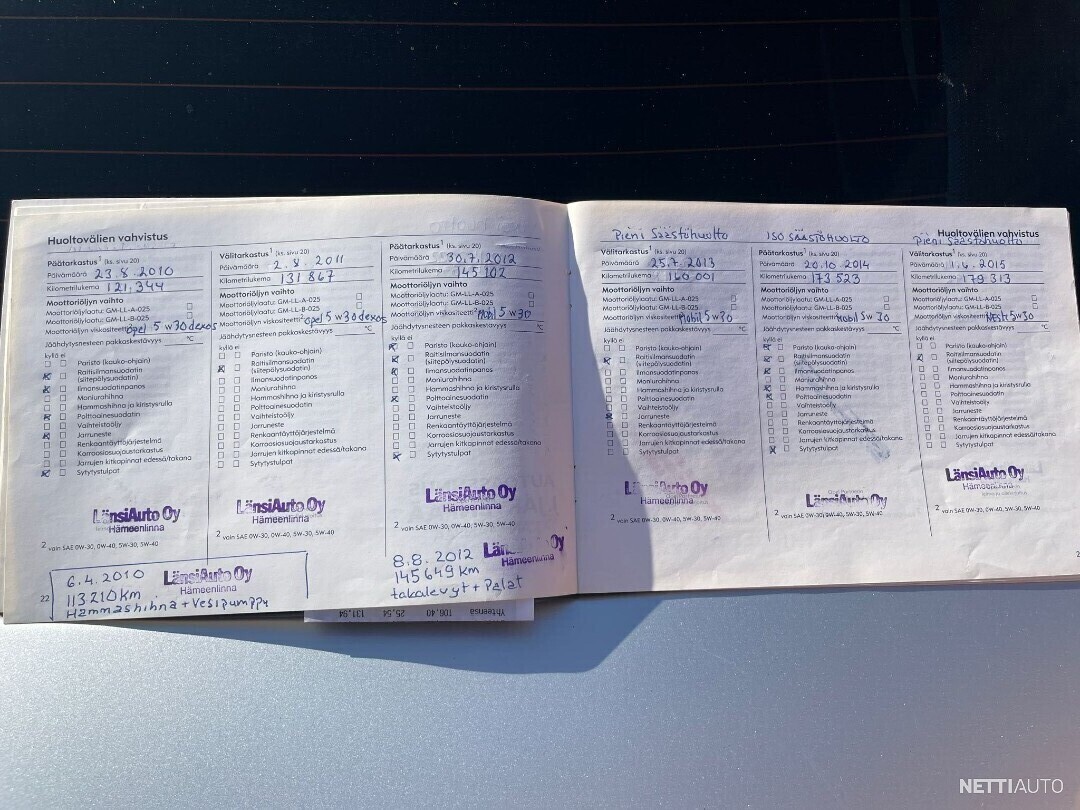 Huoltovälien vahvistus
Päätarkastus¹ (ks. sivu 20)
Päivämäärä 23.8.2010
Kilometrilukema 121.344
Moottoriöljyn vaihto
Moottoriöljylaatu: GM-LL-A-025
Moottoriöljylaatu: GM-LL-B-025
Moottoriöljyn viskositeetti² Opel 5w30 dexos
Jäähdytysnesteen pakkaskestävyys °C
kyllä ei
Paristo (kauko-ohjain)
Raitisilmansuodatin
(siitepölysuodatin)
Ilmansuodatinpanos
Moniurahihna
Hammashihna ja kiristysrulla
Polttoainesuodatin
Vaihteistoöljy
Jarruneste
Renkaantäyttöjärjestelmä
Korroosiosuojaustarkastus
Jarrujen kitkapinnat edessä/takana
Sytytystulpat
LänsiAuto Oy
Hämeenlinna
² vain SAE 0W-30, 0W-40, 5W-30, 5W-40
6.4.2010 LänsiAuto Oy
Hämeenlinna
113210km
Hammashihna + Vesipumppu
22
Välitarkastus¹ (ks. sivu 20)
Päivämäärä 2.8.2011
Kilometrilukema 131 867
Moottoriöljyn vaihto
Moottoriöljylaatu: GM-LL-A-025
Moottoriöljylaatu: GM-LL-B-025
Moottoriöljyn viskositeetti² opel 5w30 dexos
Jäähdytysnesteen pakkaskestävyys °C
kyllä ei
Paristo (kauko-ohjain)
Raitisilmansuodatin
(siitepölysuodatin)
Ilmansuodatinpanos
Moniurahihna
Hammashihna ja kiristysrulla
Polttoainesuodatin
Vaihteistoöljy
Jarruneste
Renkaantäyttöjärjestelmä
Korroosiosuojaustarkastus
Jarrujen kitkapinnat edessä/takana
Sytytystulpat
LänsiAuto Oy
Hämeenlinna
² vain SAE 0W-30, 0W-40, 5W-30, 5W-40
Päätarkastus¹ (ks. sivu 20)
Päivämäärä 30.7.2012
Kilometrilukema 145 102
Moottoriöljyn vaihto
Moottoriöljylaatu: GM-LL-A-025
Moottoriöljylaatu: GM-LL-B-025
Moottoriöljyn viskositeetti² Mobil 5w30
Jäähdytysnesteen pakkaskestävyys °C
kyllä ei
Paristo (kauko-ohjain)
Raitisilmansuodatin
(siitepölysuodatin)
Ilmansuodatinpanos
Moniurahihna
Hammashihna ja kiristysrulla
Polttoainesuodatin
Vaihteistoöljy
Jarruneste
Renkaantäyttöjärjestelmä
Korroosiosuojaustarkastus
Jarrujen kitkapinnat edessä/takana
Sytytystulpat
LänsiAuto Oy
Hämeenlinna
² vain SAE 0W-30, 0W-40, 5W-30, 5W-40
8.8.2012 LänsiAuto Oy
Hämeenlinna
145649km
takalevyt + Palat
Yhteensä 106,40 25,54 131,94
Pieni Säästöhuolto
Välitarkastus¹ (ks. sivu 20)
Päivämäärä 25.7.2013
Kilometrilukema 160 001
Moottoriöljyn vaihto
Moottoriöljylaatu: GM-LL-A-025
Moottoriöljylaatu: GM-LL-B-025
Moottoriöljyn viskositeetti² Mobil 5w30
Jäähdytysnesteen pakkaskestävyys °C
kyllä ei
Paristo (kauko-ohjain)
Raitisilmansuodatin
(siitepölysuodatin)
Ilmansuodatinpanos
Moniurahihna
Hammashihna ja kiristysrulla
Polttoainesuodatin
Vaihteistoöljy
Jarruneste
Renkaantäyttöjärjestelmä
Korroosiosuojaustarkastus
Jarrujen kitkapinnat edessä/takana
Sytytystulpat
LänsiAuto Oy
Hämeenlinna
² vain SAE 0W-30, 0W-40, 5W-30, 5W-40
ISO SÄÄSTÖHUOLTO
Päätarkastus¹ (ks. sivu 20)
Päivämäärä 20.10.2014
Kilometrilukema 173 523
Moottoriöljyn vaihto
Moottoriöljylaatu: GM-LL-A-025
Moottoriöljylaatu: GM-LL-B-025
Moottoriöljyn viskositeetti² Mobil 5w 30
Jäähdytysnesteen pakkaskestävyys °C
kyllä ei
Paristo (kauko-ohjain)
Raitisilmansuodatin
(siitepölysuodatin)
Ilmansuodatinpanos
Moniurahihna
Hammashihna ja kiristysrulla
Polttoainesuodatin
Vaihteistoöljy
Jarruneste
Renkaantäyttöjärjestelmä
Korroosiosuojaustarkastus
Jarrujen kitkapinnat edessä/takana
Sytytystulpat
LänsiAuto Oy
² vain SAE 0W-30, 0W-40, 5W-30, 5W-40
Huoltovälien vahvistus
Pieni Säästöhuolto
Välitarkastus¹ (ks. sivu 20)
Päivämäärä 1.6.2015
Kilometrilukema 179 313
Moottoriöljyn vaihto
Moottoriöljylaatu: GM-LL-A-025
Moottoriöljylaatu: GM-LL-B-025
Moottoriöljyn viskositeetti² Neste 5w30
Jäähdytysnesteen pakkaskestävyys °C
kyllä ei
Paristo (kauko-ohjain)
Raitisilmansuodatin
(siitepölysuodatin)
Ilmansuodatinpanos
Moniurahihna
Hammashihna ja kiristysrulla
Polttoainesuodatin
Vaihteistoöljy
Jarruneste
Renkaantäyttöjärjestelmä
Korroosiosuojaustarkastus
Jarrujen kitkapinnat edessä/takana
Sytytystulpat
LänsiAuto Oy
Hämeenlinna
² vain SAE 0W-30, 0W-40, 5W-30, 5W-40
NETTIAUTO